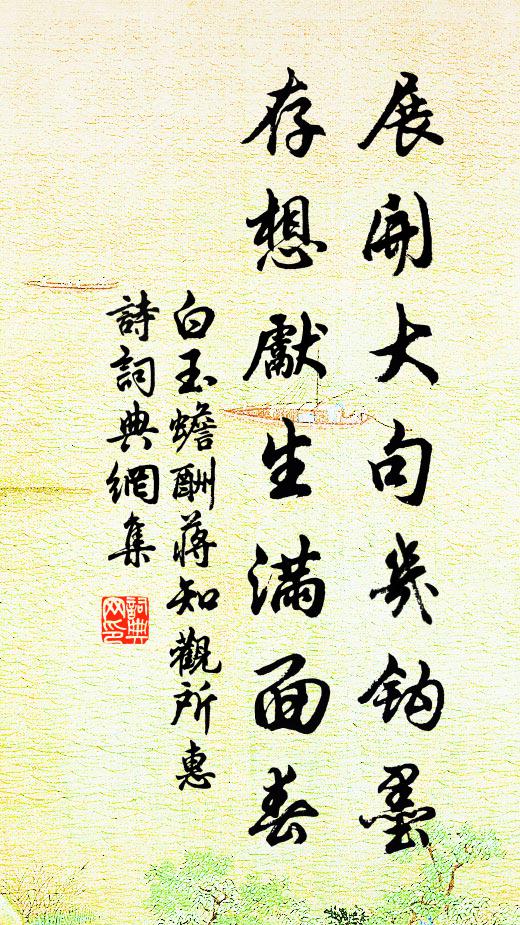 展開大句幾鈎墨
存想獻生滿面春
白玉蟾酬蔣知觀所惠
詩詞典網集
詞典
网印